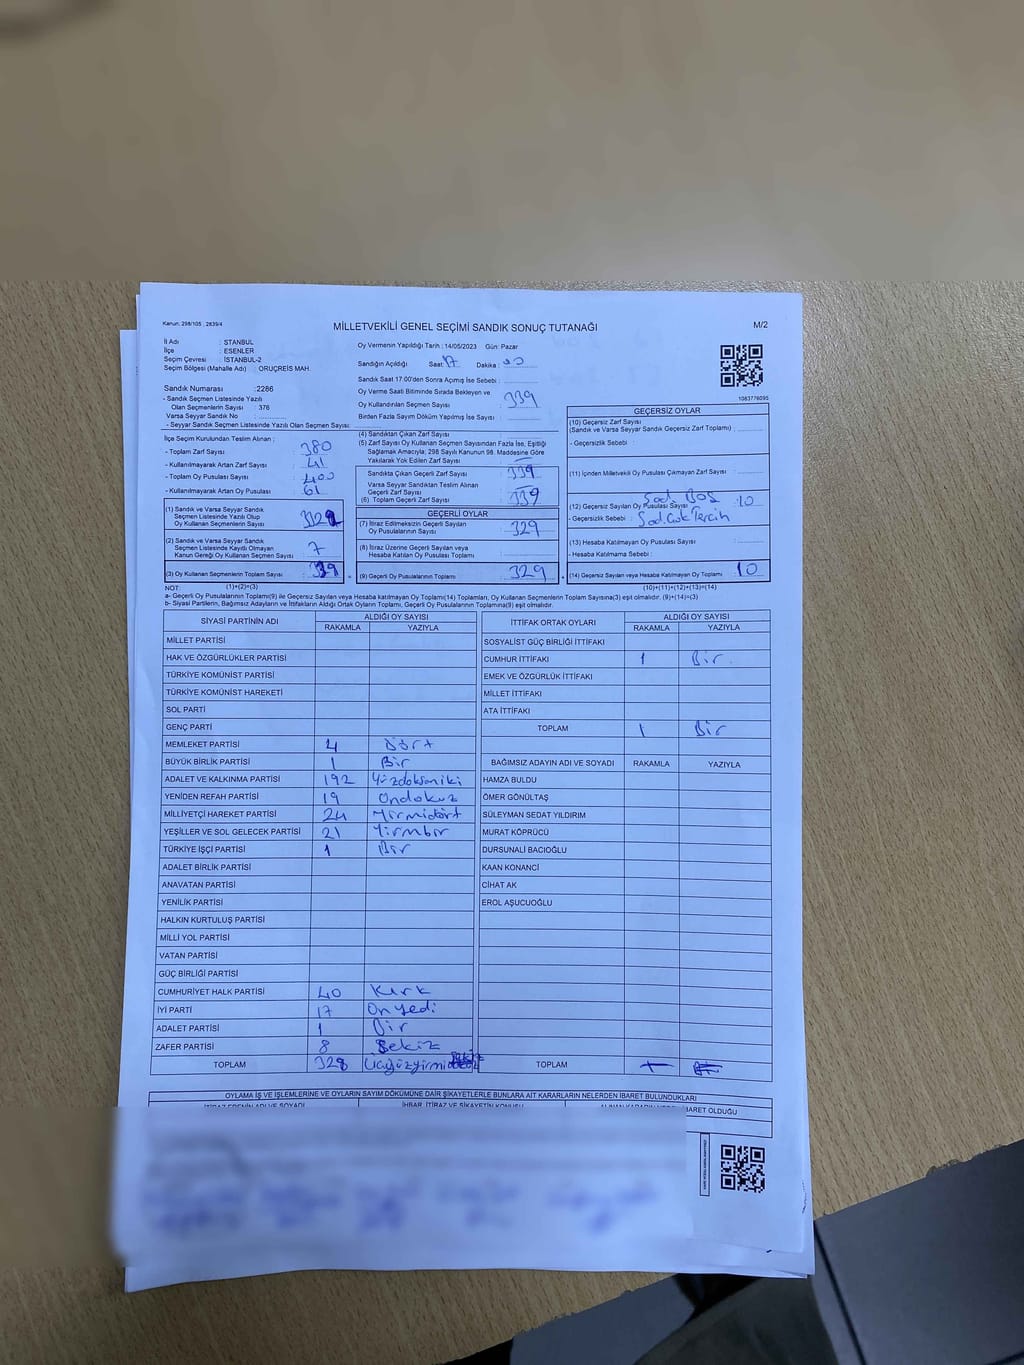 Kanun: 298/105 , 2839/4
MİLLETVEKİLİ GENEL SEÇİMİ SANDIK SONUÇ TUTANAĞI
M/2
İl Adı : İSTANBUL
İlçe : ESENLER
Seçim Çevresi : İSTANBUL-2
Seçim Bölgesi (Mahalle Adı) : ORUÇREİS MAH.
Sandık Numarası :2286
- Sandık Seçmen Listesinde Yazılı
Olan Seçmenlerin Sayısı : 376
Varsa Seyyar Sandık No :
- Seyyar Sandık Seçmen Listesinde Yazılı Olan Seçmen Sayısı:
Oy Vermenin Yapıldığı Tarih : 14/05/2023 Gün: Pazar
Sandığın Açıldığı Saat: 17 Dakika :
Sandık Saat 17:00'den Sonra Açımış İse Sebebi :
Oy Verme Saati Bitiminde Sırada Bekleyen ve
Oy Kullandırılan Seçmen Sayısı : 339
Birden Fazla Sayım Döküm Yapılmış İse Sayısı :
1083776095
İlçe Seçim Kurulundan Teslim Alınan ;
- Toplam Zarf Sayısı : 380
- Kullanılmayarak Artan Zarf Sayısı : 41
- Toplam Oy Pusulası Sayısı : 400
- Kullanılmayarak Artan Oy Pusulası : 61
(1) Sandık ve Varsa Seyyar Sandık
Seçmen Listesinde Yazılı Olup
Oy Kullanan Seçmenlerin Sayısı
(2) Sandık ve Varsa Seyyar Sandık
Seçmen Listesinde Kayıtlı Olmayan
Kanun Gereği Oy Kullanan Seçmen Sayısı : 7
(3) Oy Kullanan Seçmenlerin Toplam Sayısı : 339
(1)+(2)=(3)
(4) Sandıktan Çıkan Zarf Sayısı :
(5) Zarf Sayısı Oy Kullanan Seçmen Sayısından Fazla İse, Eşitliği
Sağlamak Amacıyla; 298 Sayılı Kanunun 98. Maddesine Göre
Yakılarak Yok Edilen Zarf Sayısı :
Sandıkta Çıkan Geçerli Zarf Sayısı : 339
Varsa Seyyar Sandıktan Teslim Alınan
Geçerli Zarf Sayısı : —
(6) Toplam Geçerli Zarf Sayısı : 339
GEÇERLİ OYLAR
(7) İtiraz Edilmeksizin Geçerli Sayılan
Oy Pusulalarının Sayısı : 329
(8) İtiraz Üzerine Geçerli Sayılan veya
Hesaba Katılan Oy Pusulası Toplamı :
(9) Geçerli Oy Pusulalarının Toplamı : 329
GEÇERSİZ OYLAR
(10) Geçersiz Zarf Sayısı
(Sandık ve Varsa Seyyar Sandık Geçersiz Zarf Toplamı) :
- Geçersizlik Sebebi :
(11) İçinden Milletvekili Oy Pusulası Çıkmayan Zarf Sayısı :
(12) Geçersiz Sayılan Oy Pusulası Sayısı : 10
- Geçersizlik Sebebi :
(13) Hesaba Katılmayan Oy Pusulası Sayısı :
- Hesaba Katılmama Sebebi :
(14) Geçersiz Sayılan veya Hesaba Katılmayan Oy Toplamı : 10
(10)+(11)+(12)+(13)=(14)
NOT:
a- Geçerli Oy Pusulalarının Toplamı(9) ile Geçersiz Sayılan veya Hesaba katılmayan Oy Toplamı(14) Toplamları, Oy Kullanan Seçmenlerin Toplam Sayısına(3) eşit olmalıdır. (9)+(14)=(3)
b- Siyasi Partilerin, Bağımsız Adayların ve İttifakların Aldığı Ortak Oyların Toplamı, Geçerli Oy Pusulalarının Toplamına(9) eşit olmalıdır.
SİYASİ PARTİNİN ADI ALDIĞI OY SAYISI
RAKAMLA YAZIYLA
MİLLET PARTİSİ
HAK VE ÖZGÜRLÜKLER PARTİSİ
TÜRKİYE KOMÜNİST PARTİSİ
TÜRKİYE KOMÜNİST HAREKETİ
SOL PARTİ
GENÇ PARTİ
MEMLEKET PARTİSİ 4 Dört
BÜYÜK BİRLİK PARTİSİ 1 Bir
ADALET VE KALKINMA PARTİSİ 192 Yüzdoksaniki
YENİDEN REFAH PARTİSİ 19 Ondokuz
MİLLİYETÇİ HAREKET PARTİSİ 24 Yirmidört
YEŞİLLER VE SOL GELECEK PARTİSİ 21 Yirmbir
TÜRKİYE İŞÇİ PARTİSİ 1 Bir
ADALET BİRLİK PARTİSİ
ANAVATAN PARTİSİ
YENİLİK PARTİSİ
HALKIN KURTULUŞ PARTİSİ
MİLLİ YOL PARTİSİ
VATAN PARTİSİ
GÜÇ BİRLİĞİ PARTİSİ
CUMHURİYET HALK PARTİSİ 40 Kırk
İYİ PARTİ 17 Onyedi
ADALET PARTİSİ 1 Bir
ZAFER PARTİSİ 8 Sekiz
TOPLAM 328
İTTİFAK ORTAK OYLARI ALDIĞI OY SAYISI
RAKAMLA YAZIYLA
SOSYALİST GÜÇ BİRLİĞİ İTTİFAKI
CUMHUR İTTİFAKI 1 Bir
EMEK VE ÖZGÜRLÜK İTTİFAKI
MİLLET İTTİFAKI
ATA İTTİFAKI
TOPLAM 1 Bir
BAĞIMSIZ ADAYIN ADI VE SOYADI RAKAMLA YAZIYLA
HAMZA BULDU
ÖMER GÖNÜLTAŞ
SÜLEYMAN SEDAT YILDIRIM
MURAT KÖPRÜCÜ
DURSUNALİ BACIOĞLU
KAAN KONANCİ
CİHAT AK
EROL AŞUCUOĞLU
TOPLAM
OYLAMA İŞ VE İŞLEMLERİNE VE OYLARIN SAYIM DÖKÜMÜNE DAİR ŞİKAYETLERLE BUNLARA AİT KARARLARIN NELERDEN İBARET BULUNDUKLARI
İTİRAZ EDENİN ADI VE SOYADI İHBAR, İTİRAZ VE ŞİKAYETİN KONUSU